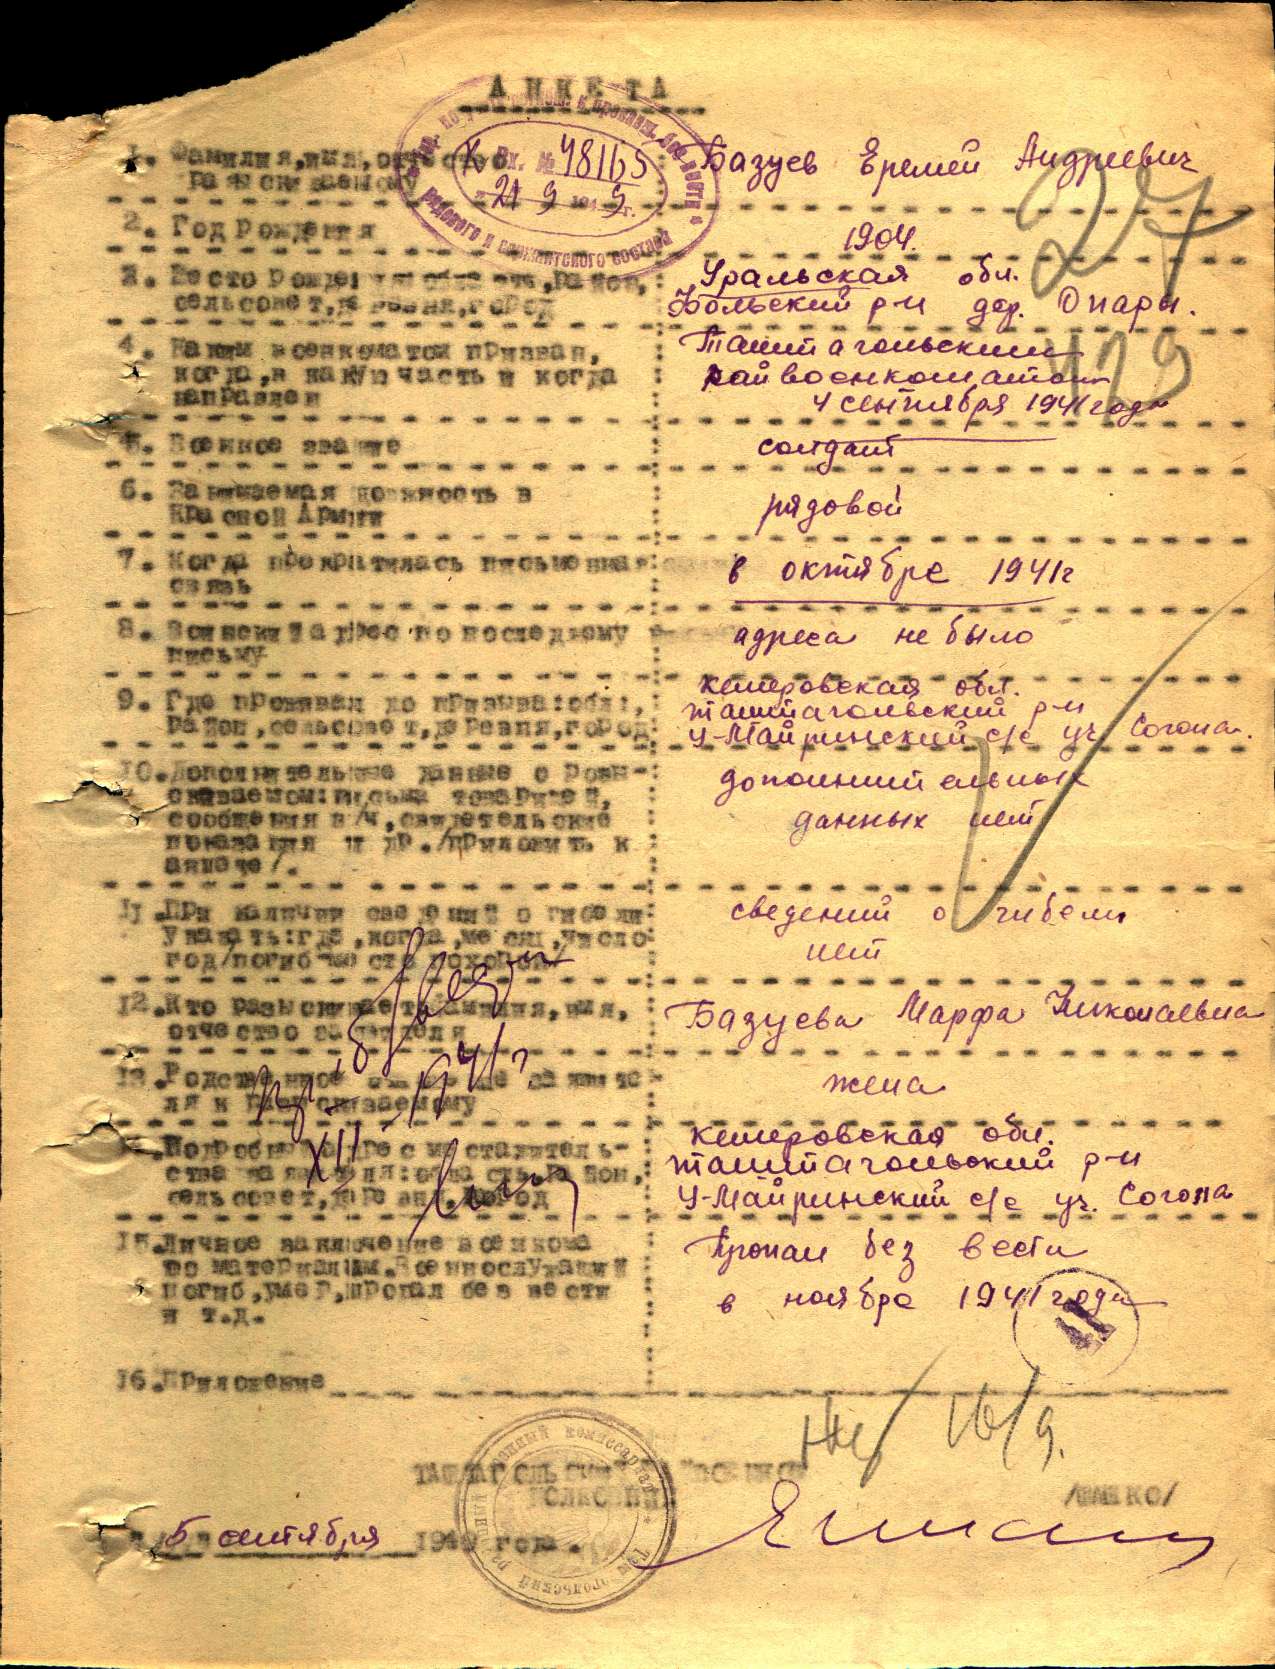 АНКЕТА
1. Фамилия, имя, отчество
разыскиваемому
Базуев Еремей Андреевич
Вх. № 48165
21 9 1949 г.
рядового и сержантского состава
27
2. Год рождения
1904.
3. Место рождения: область, район,
сельсовет, деревня, город
Уральская обл.
р-н дер. Опары.
4. Каким военкоматом призван,
когда, в какую часть и когда
направлен
Таштагольским
райвоенкоматом
4 сентября 1941 года
5. Военное звание
солдат
6. Занимаемая должность в
Красной Армии
рядовой
7. Когда прекратилась письменная
связь
в октябре 1941г
8. Воинский адрес по последнему
письму
адреса не было
9. Где проживал до призыва: обл.,
район, сельсовет, деревня, город
Кемеровская обл.
Таштагольский р-н
У-Майринский с/с уч. Согона.
10. Дополнительные данные о разы-
скиваемом: письма товарищей,
сообщения в/ч, свидетельские
показания и др. /приложить к
анкете/.
дополнительных
данных нет
11. При наличии сведений о гибели
указать: где, когда, месяц, число
год/погиб место похорон/
сведений о гибели
нет
12. Кто разыскивает: фамилия, имя,
отчество заявителя
Базуева Марфа Николаевна
13. Родственное отношение заявите-
ля к разыскиваемому
жена
XII - 1941г.
Подробный адрес местожитель-
ства заявителя: область, район,
сельсовет, деревня, город
Кемеровская обл.
Таштагольский р-н
У-Майринский с/с уч. Согопа
15. Личное заключение военкома
по материалам. Военнослужащий
погиб, умер, пропал без вести
и т.д.
Пропал без вести
в ноябре 1941 года
16. Приложение
16/9.
ТАШТАГОЛЬСКИЙ РАЙВОЕНКОМ
ПОЛКОВНИК
5 сентября 1949 года.